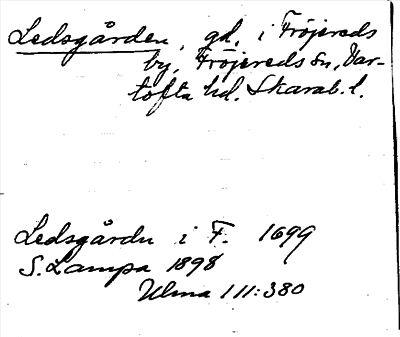 Ledsgården, gd, i Fröjereds
by, Fröjereds sn, Var-
tofta hd. Skarab. l.
Ledsgårdn i F. 1699
S. Lampa 1898
Ulma 111:380